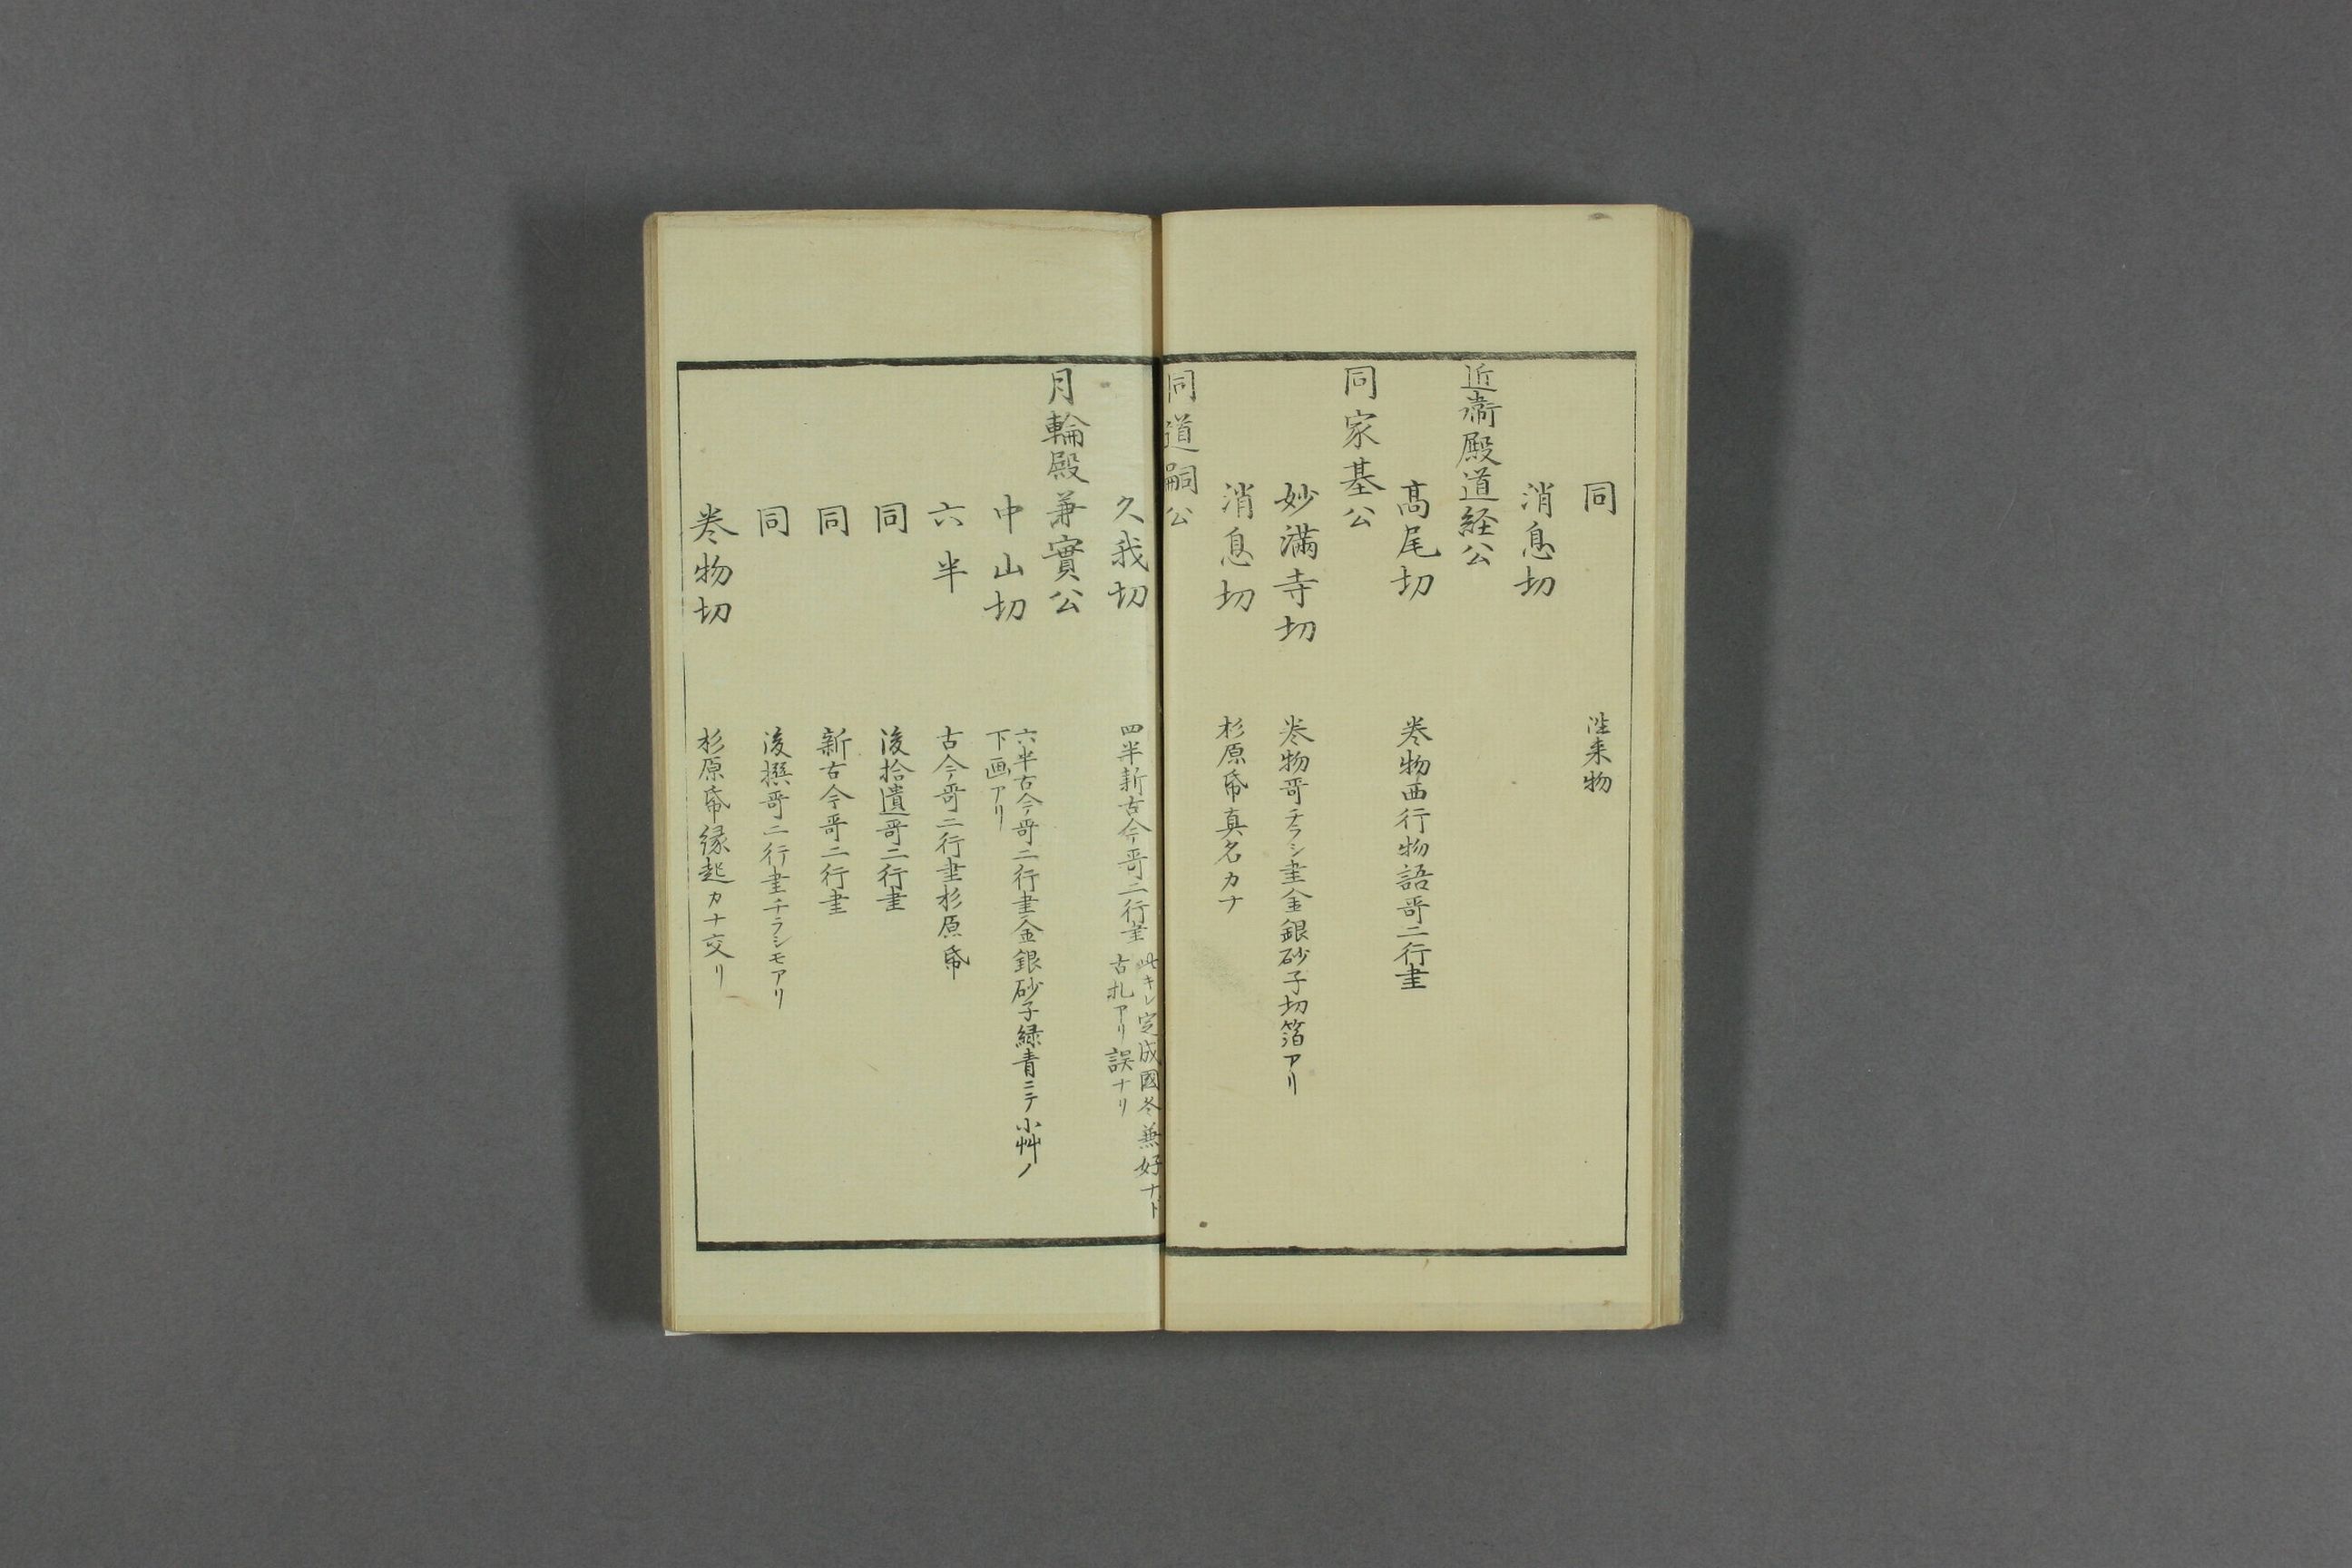 同　往来物
消息切
近衞殿道経公
髙尾切　巻物西行物語哥二行書
同家基公
妙滿寺切　巻物哥チラシ書金銀砂子切箔アリ
消息切　杉原帋真名カナ
同道嗣公
久我切　四半新古今哥二行書
此キレ定成國冬兼好ナド
古札アリ誤ナリ
月輪殿兼實公
中山切　六半古今哥二行書金銀砂子緑青ニテ小艸ノ
下画アリ
六半　古今哥二行書杉原帋
同　後拾遺哥二行書
同　新古今哥二行書
同　後撰哥二行書チラシモアリ
巻物切　杉原帋縁起カナ交リ